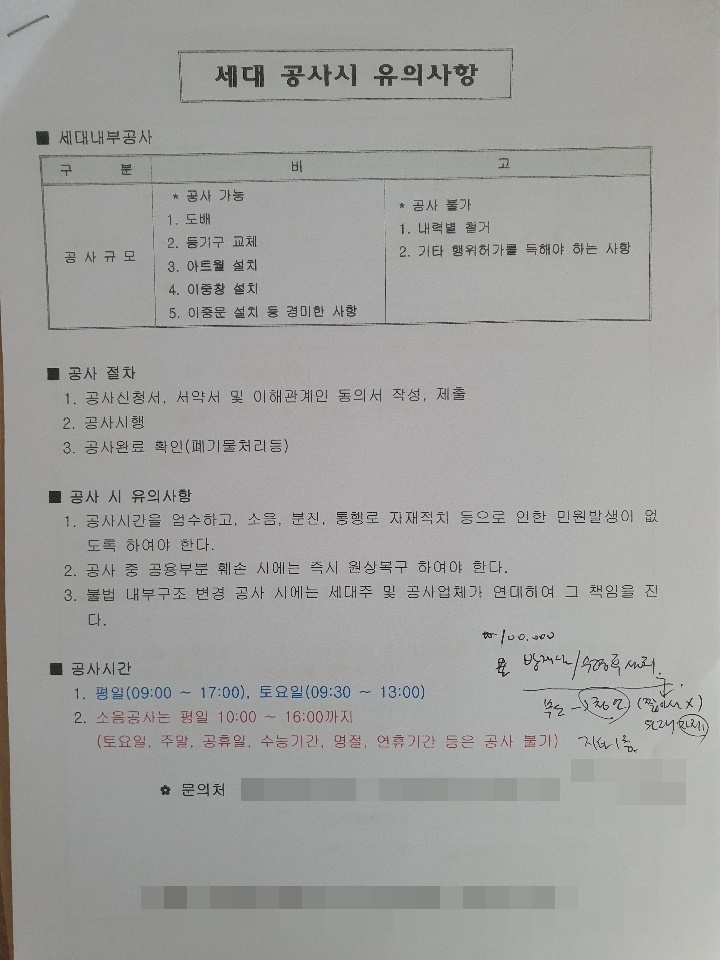 세대 공사시 유의사항
■ 세대내부공사
구 분 비 고
공 사 규 모
* 공사 가능
1. 도배
2. 등기구 교체
3. 아트월 설치
4. 이중창 설치
5. 이중문 설치 등 경미한 사항
* 공사 불가
1. 내력벽 철거
2. 기타 행위허가를 득해야 하는 사항
■ 공사 절차
1. 공사신청서, 서약서 및 이해관계인 동의서 작성, 제출
2. 공사시행
3. 공사완료 확인(폐기물처리등)
■ 공사 시 유의사항
1. 공사시간을 엄수하고, 소음, 분진, 통행로 자재적치 등으로 인한 민원발생이 없
도록 하여야 한다.
2. 공사 중 공용부분 훼손 시에는 즉시 원상복구 하여야 한다.
3. 불법 내부구조 변경 공사 시에는 세대주 및 공사업체가 연대하여 그 책임을 진
다.
₩100.000
■ 공사시간
1. 평일(09:00 ~ 17:00), 토요일(09:30 ~ 13:00)
2. 소음공사는 평일 10:00 ~ 16:00까지
(토요일, 주말, 공휴일, 수능기간, 명절, 연휴기간 등은 공사 불가)
지하1층
✿ 문의처